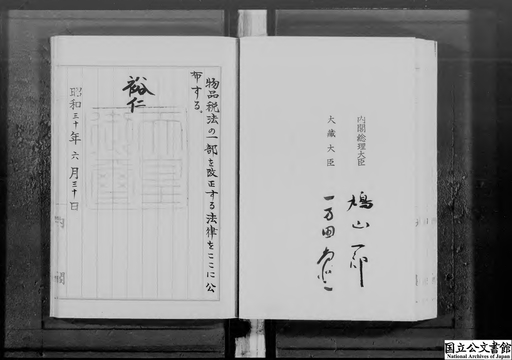 内閣総理大臣 鳩山一郎
大蔵大臣 一万田尚登
物品税法の一部を改正する法律をここに公
布する。
裕仁
天皇
御璽
昭和三十年六月三十日
国立公文書館
National Archives of Japan